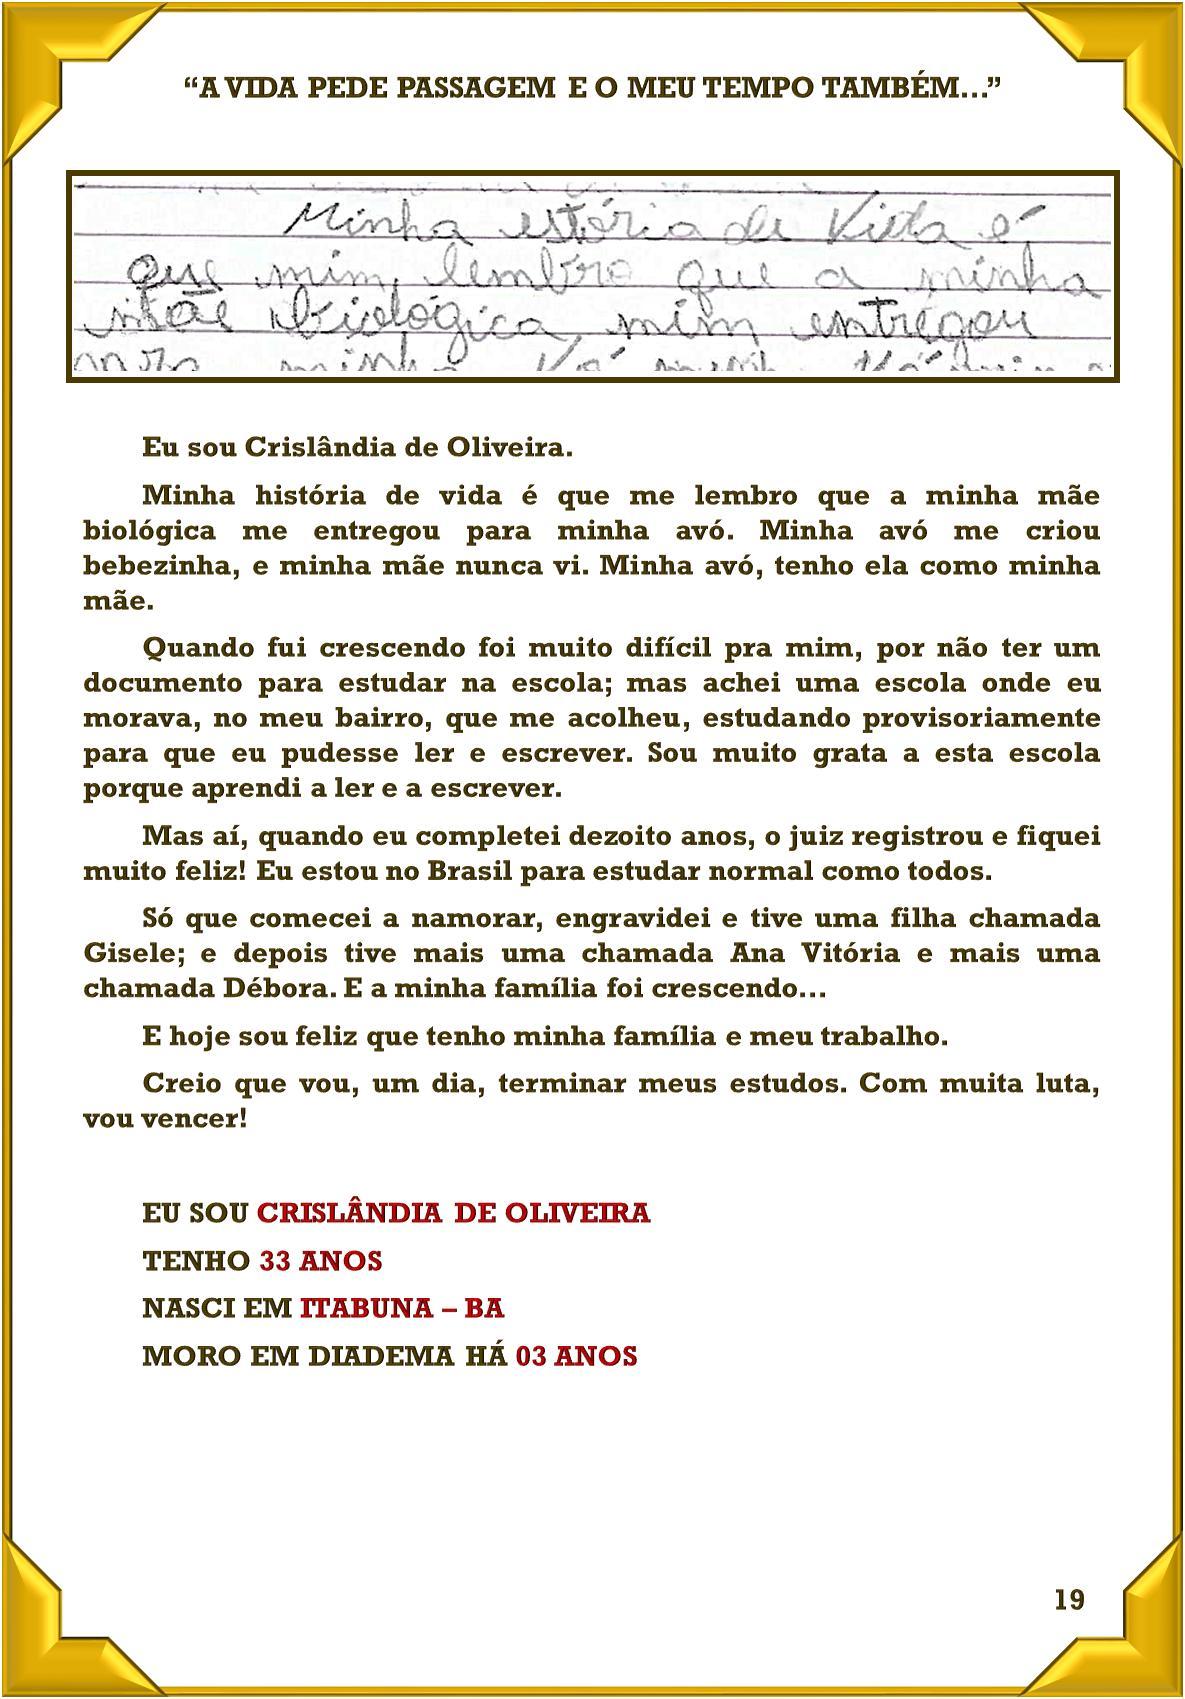 “A VIDA PEDE PASSAGEM E O MEU TEMPO TAMBÉM...”
Minha estória de Vida é
que mim lembro que a minha
mãe biológica mim entregou
minha
Eu sou Crislândia de Oliveira.
Minha história de vida é que me lembro que a minha mãe
biológica me entregou para minha avó. Minha avó me criou
bebezinha, e minha mãe nunca vi. Minha avó, tenho ela como minha
mãe.
Quando fui crescendo foi muito difícil pra mim, por não ter um
documento para estudar na escola; mas achei uma escola onde eu
morava, no meu bairro, que me acolheu, estudando provisoriamente
para que eu pudesse ler e escrever. Sou muito grata a esta escola
porque aprendi a ler e a escrever.
Mas aí, quando eu completei dezoito anos, o juiz registrou e fiquei
muito feliz! Eu estou no Brasil para estudar normal como todos.
Só que comecei a namorar, engravidei e tive uma filha chamada
Gisele; e depois tive mais uma chamada Ana Vitória e mais uma
chamada Débora. E a minha família foi crescendo...
E hoje sou feliz que tenho minha família e meu trabalho.
Creio que vou, um dia, terminar meus estudos. Com muita luta,
vou vencer!
EU SOU CRISLÂNDIA DE OLIVEIRA
TENHO 33 ANOS
NASCI EM ITABUNA – BA
MORO EM DIADEMA HÁ 03 ANOS
19